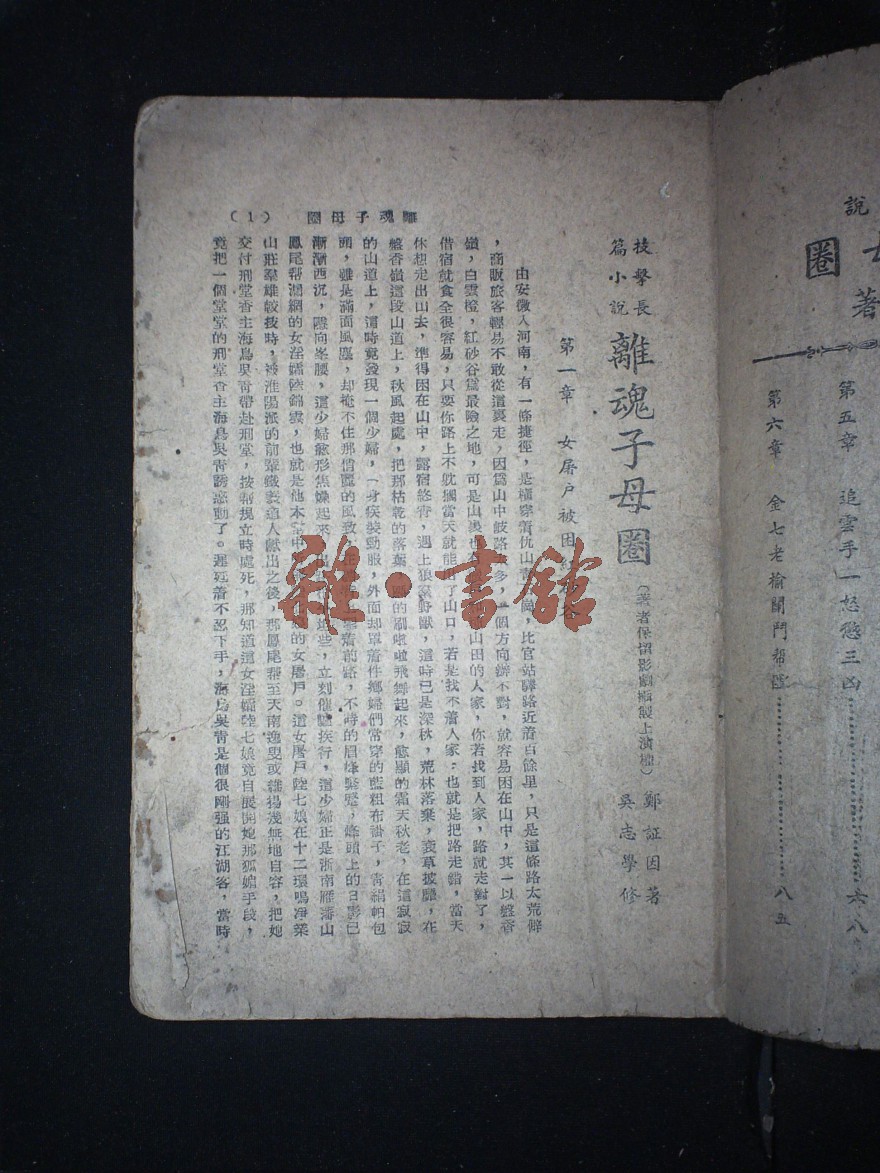 說
圈
著
第五章　追雲手一怒懲三凶……六八
第六章　金七老榆關鬥幫匪……八五
技擊長篇小說
離魂子母圈
（著者保留影劇攝製上演權）
鄭証因著
吳志學修
第一章　女屠戶被困紅砂谷
由安徽入河南，有一條捷徑，是橫穿
，比官站驛路近着百餘里，只是這條路太荒僻
，商販旅客輕易不敢從這裏走，因爲山中歧路
多，
個方向辨不對，就容易困在山中，其一以盤香
嶺，白雲磴，紅砂谷爲最險之地，可是山裏也
山田的人家，你若找到人家，路就走對了，
借宿就食全很容易，只要你路上不躭擱當天就能
了山口，若是找不着人家；也就是把路走錯，當天
休想走出山去，準得困在山中，露宿終宵，遇上狼羣野獸，這時已是深秋，荒林落葉，衰草披靡，在
盤香嶺這段山道上，秋風起處，把那枯乾的落葉
的刷啦啦飛舞起來，愈顯的霜天秋老，在這寂寂
的山道上，這時竟發現一個少婦，一身疾裝勁服，外面却罩着件鄉婦們常穿的藍粗布褂子，青絹帕包
頭，雖是滿面風塵，却掩不住那俏麗的風致，
着前路，不時的眉峰緊蹙，峰頭上的日影已
漸漸西沉，
向峯腰，這少婦愈形焦燥起來，
些，立刻催
疾行，這少婦正是浙南雁蕩山
鳳尾帮漏網的女淫孀陸錦雲，也就是他本
中
的女屠戶。這女屠戶陸七娘在十二環鳴淨業
山莊羣雄較技時，被淮陽派的前輩鐵簑道人獻出之後，那鳳尾帮至天南逸叟武維揚淺無地自容，把她
交付刑堂香主海鳥吳青帶赴刑堂，按幫規立時處死，那知道這女淫孀陸七娘竟自展開她那狐媚手段，
竟把一個堂堂的刑堂香主海鳥吳青誘惑動了。遲延着不忍下手，海鳥吳青是個很剛强的江湖客，當時
離魂子母圈　（1）
雜·書館